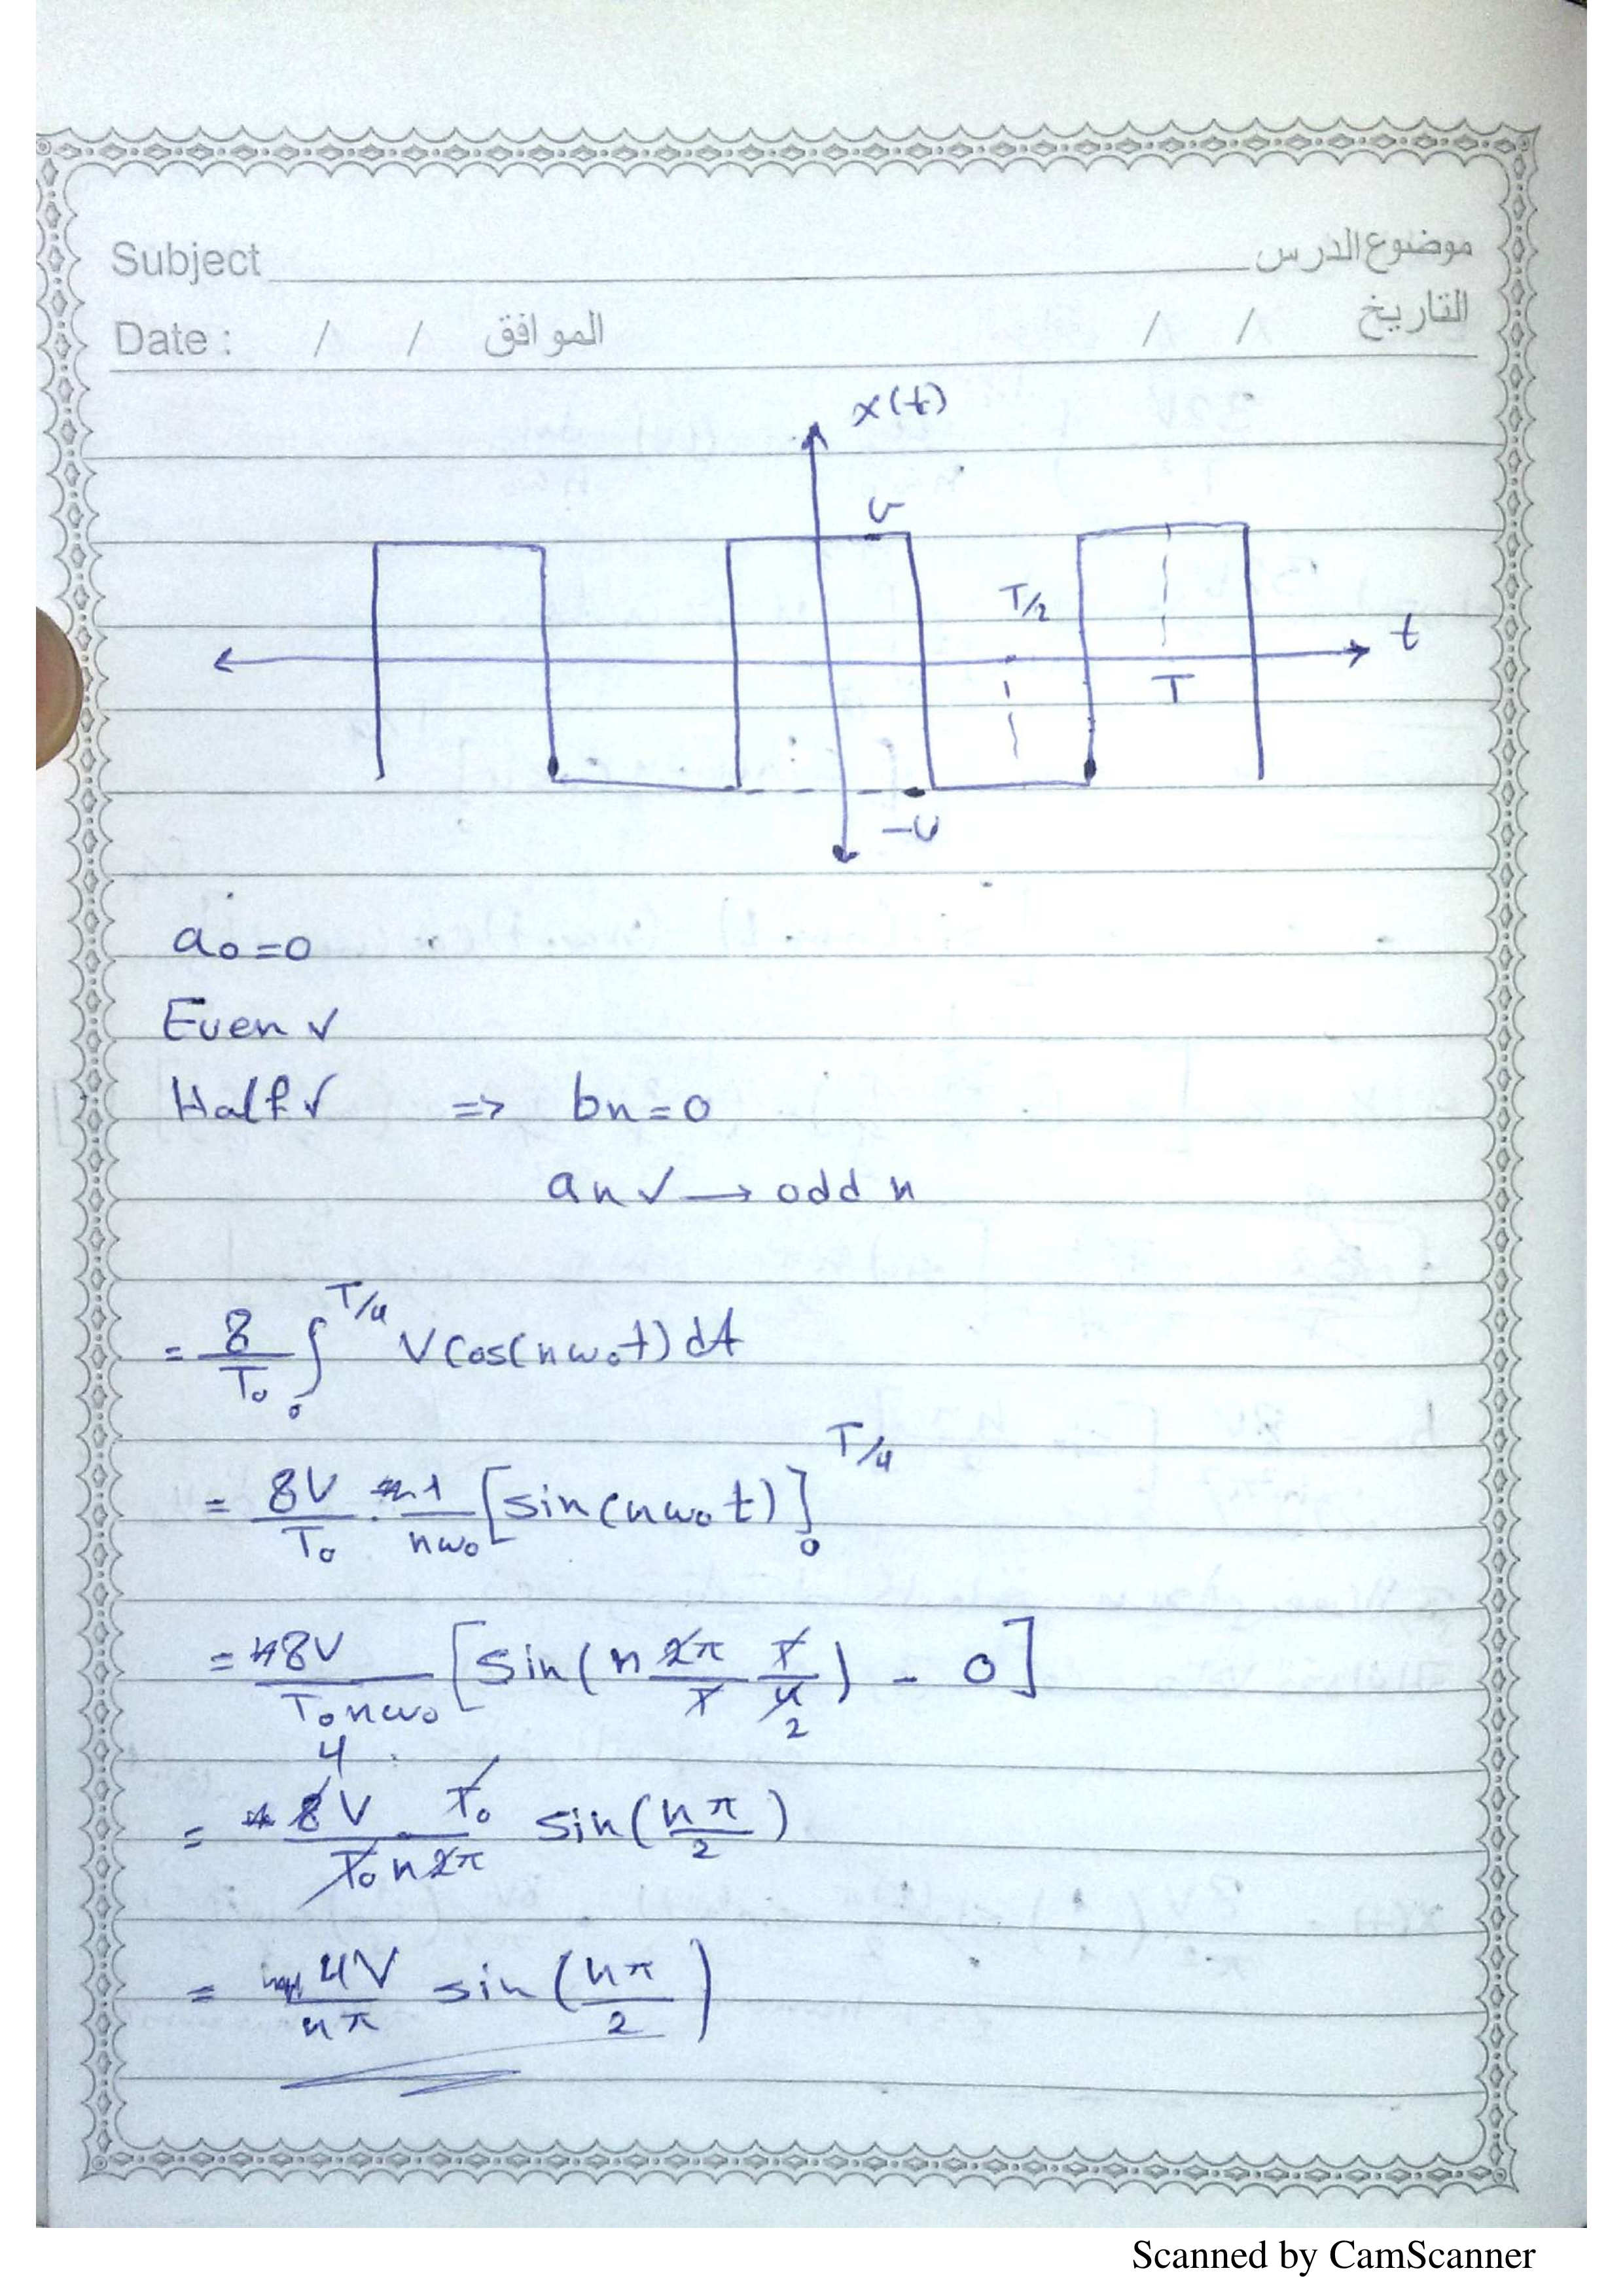 Subject موضوع الدرس
Date : / / الموافق / / التاريخ
x(t)
v
T/2
t
T
-v
a₀ = 0
Even ✓
Half ✓ => bn = 0
an ✓ → odd n
= 8/T₀ ∫₀^T/4 V cos(nω₀t) dt
= 8V/T₀ · 1/nω₀ [sin(nω₀t)]₀^T/4
= 8V/T₀nω₀ [sin(n 2π/T T/4 2) - 0]
4
= 8V T₀/T₀n2π sin(nπ/2)
= 4V/nπ sin(nπ/2)
Scanned by CamScanner